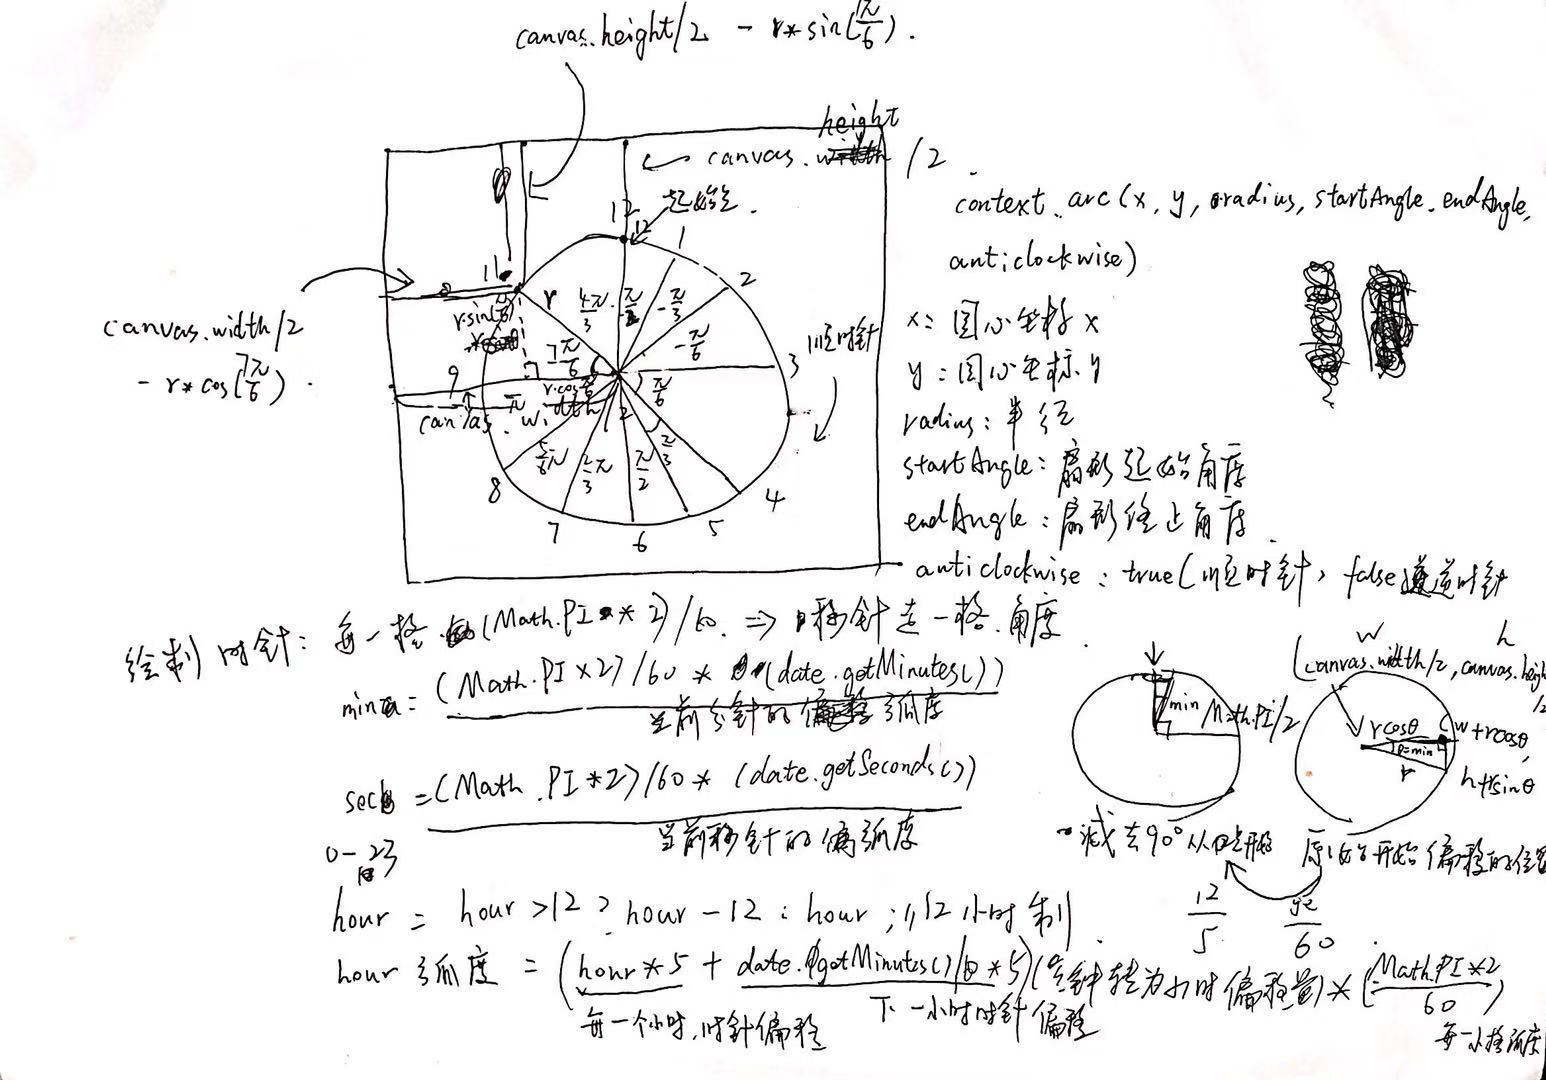 canvas.height/2 - r*sin(7π/6).
height
canvas. /2
起始点.
12
12
1
11
2
r
r·sin(π/6)
4π/3
-π/2
-π/3
-π/6
canvas.width/2
- r*cos(7π/6).
7π/6
9
3
顺时针
r·cos
π/6
π
canvas.width
2
π/3
5/6π
2/3π
π/2
8
4
7
5
6
context.arc(x, y, radius, startAngle, endAngle,
anticlockwise)
x: 圆心坐标x
y: 圆心坐标y
radius: 半径
startAngle: 扇形起始角度
endAngle: 扇形终止角度.
anticlockwise: true(顺时针, false逆时针
绘制时针: 每一格 (Math.PI * 2)/60. => 秒针走一格.角度
min = (Math.PI×2)/60 * (date.getMinutes())
当前分针的偏移弧度
sec = (Math.PI*2)/60 * (date.getSeconds())
当前秒针的偏弧度
0-23
hour = hour>12 ? hour-12 : hour; //12小时制
hour弧度 = (hour*5 + date.getMinutes()/60*5)(分钟转为小时偏移量)*(Math.PI*2/60)
每一个小时,时针偏移
下一小时时针偏移
每一小格弧度
min
Math.PI/2
减去90°从12点开始
w
h
(canvas.width/2, canvas.heigh
/2
rcosθ
(w+rcosθ,
θ=min
r
h+rsinθ
原始开始偏移的位置
12/5
60